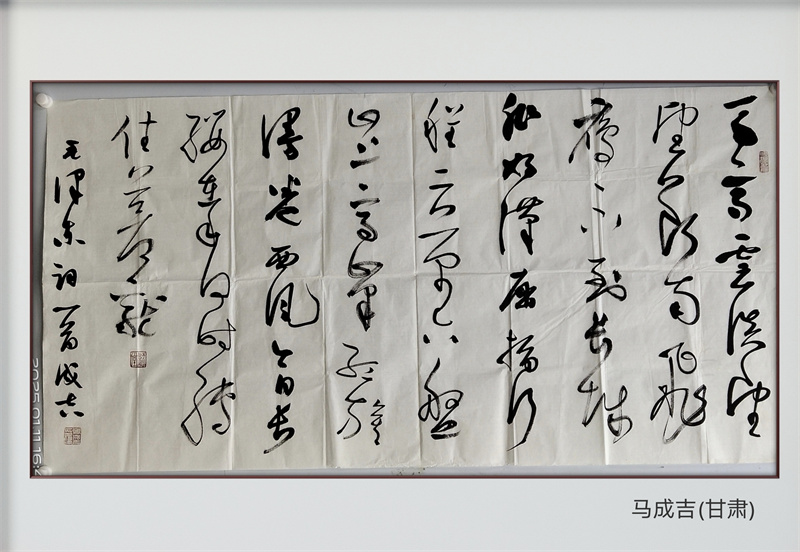 天高雲淡
望断南飛
雁不到長城
非好漢屈指行
程二万六盤
山上高峰红旗
漫卷西風今日長
缨在手何时缚
住苍龍
毛泽东词一首成吉
2025.01.11 16:2
马成吉(甘肃)